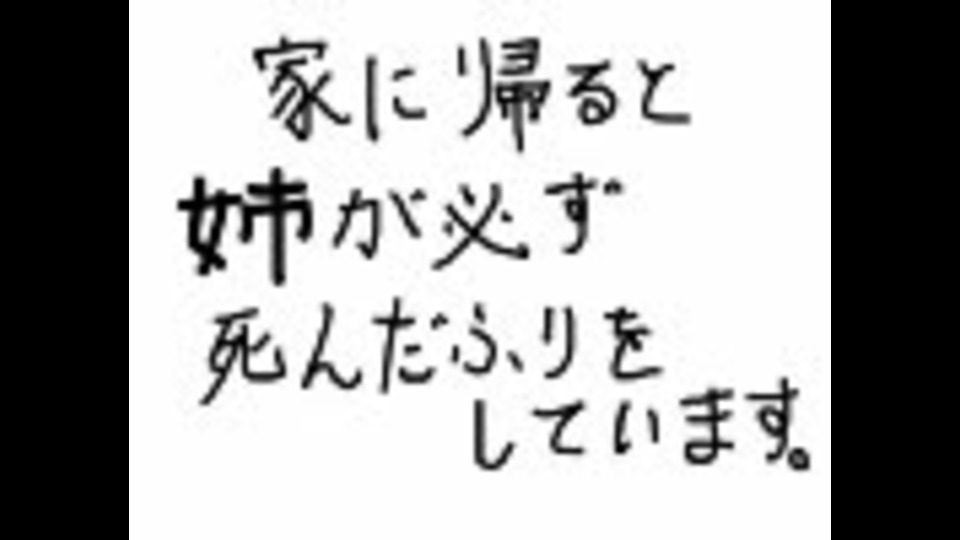 家に帰ると
姉が必ず
死んだふりを
しています。